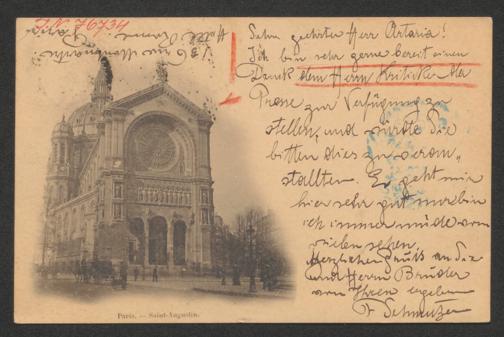 I.N. 76734
Sehr geehrter Herr Artaria!
Ich bin sehr gerne bereit einen
Druck dem Herrn Kritiker der
Presse zur Verfügung zu
stellen, und würde Sie
bitten dies zu veran„
stallten. Es geht mir
hier sehr gut nur bin
ich immer müde vom
vielen sehen.
Herzlichen Gruß an Sie
und Herrn Bruder
von Ihrem ergebenen
F Schmutzer
Paris. — Saint-Augustin.